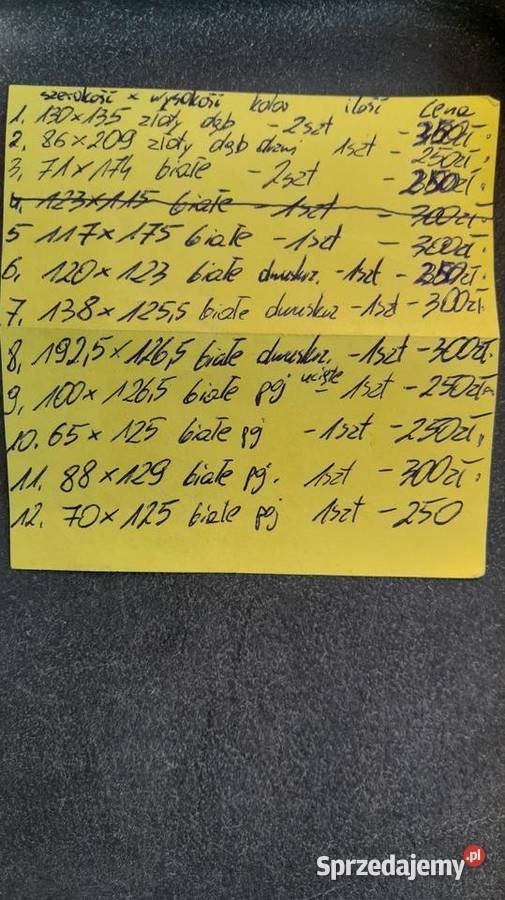 szerokość x wysokość kolor ilość cena
1. 130x135 złoty dąb - 2szt
2. 86x209 złoty dąb drzwi 1szt - 250zł.
3. 71x174 białe - 2szt
4. 123x115 białe - 1szt - 300zł.
5 117x175 białe - 1szt - 300zł.
6. 120x123 białe dwuskrz. - 1szt
7. 138x125,5 białe dwuskrz - 1szt - 300zł.
8. 192,5x126,5 białe dwuskrz. - 1szt - 300zł.
9. 100x126,5 białe pj - 1szt - 250zł
10. 65x125 białe pj - 1szt - 250zł,
11. 88x129 białe pj. 1szt - 300zł.
12. 70x125 białe pj 1szt - 250
Sprzedajemy.pl